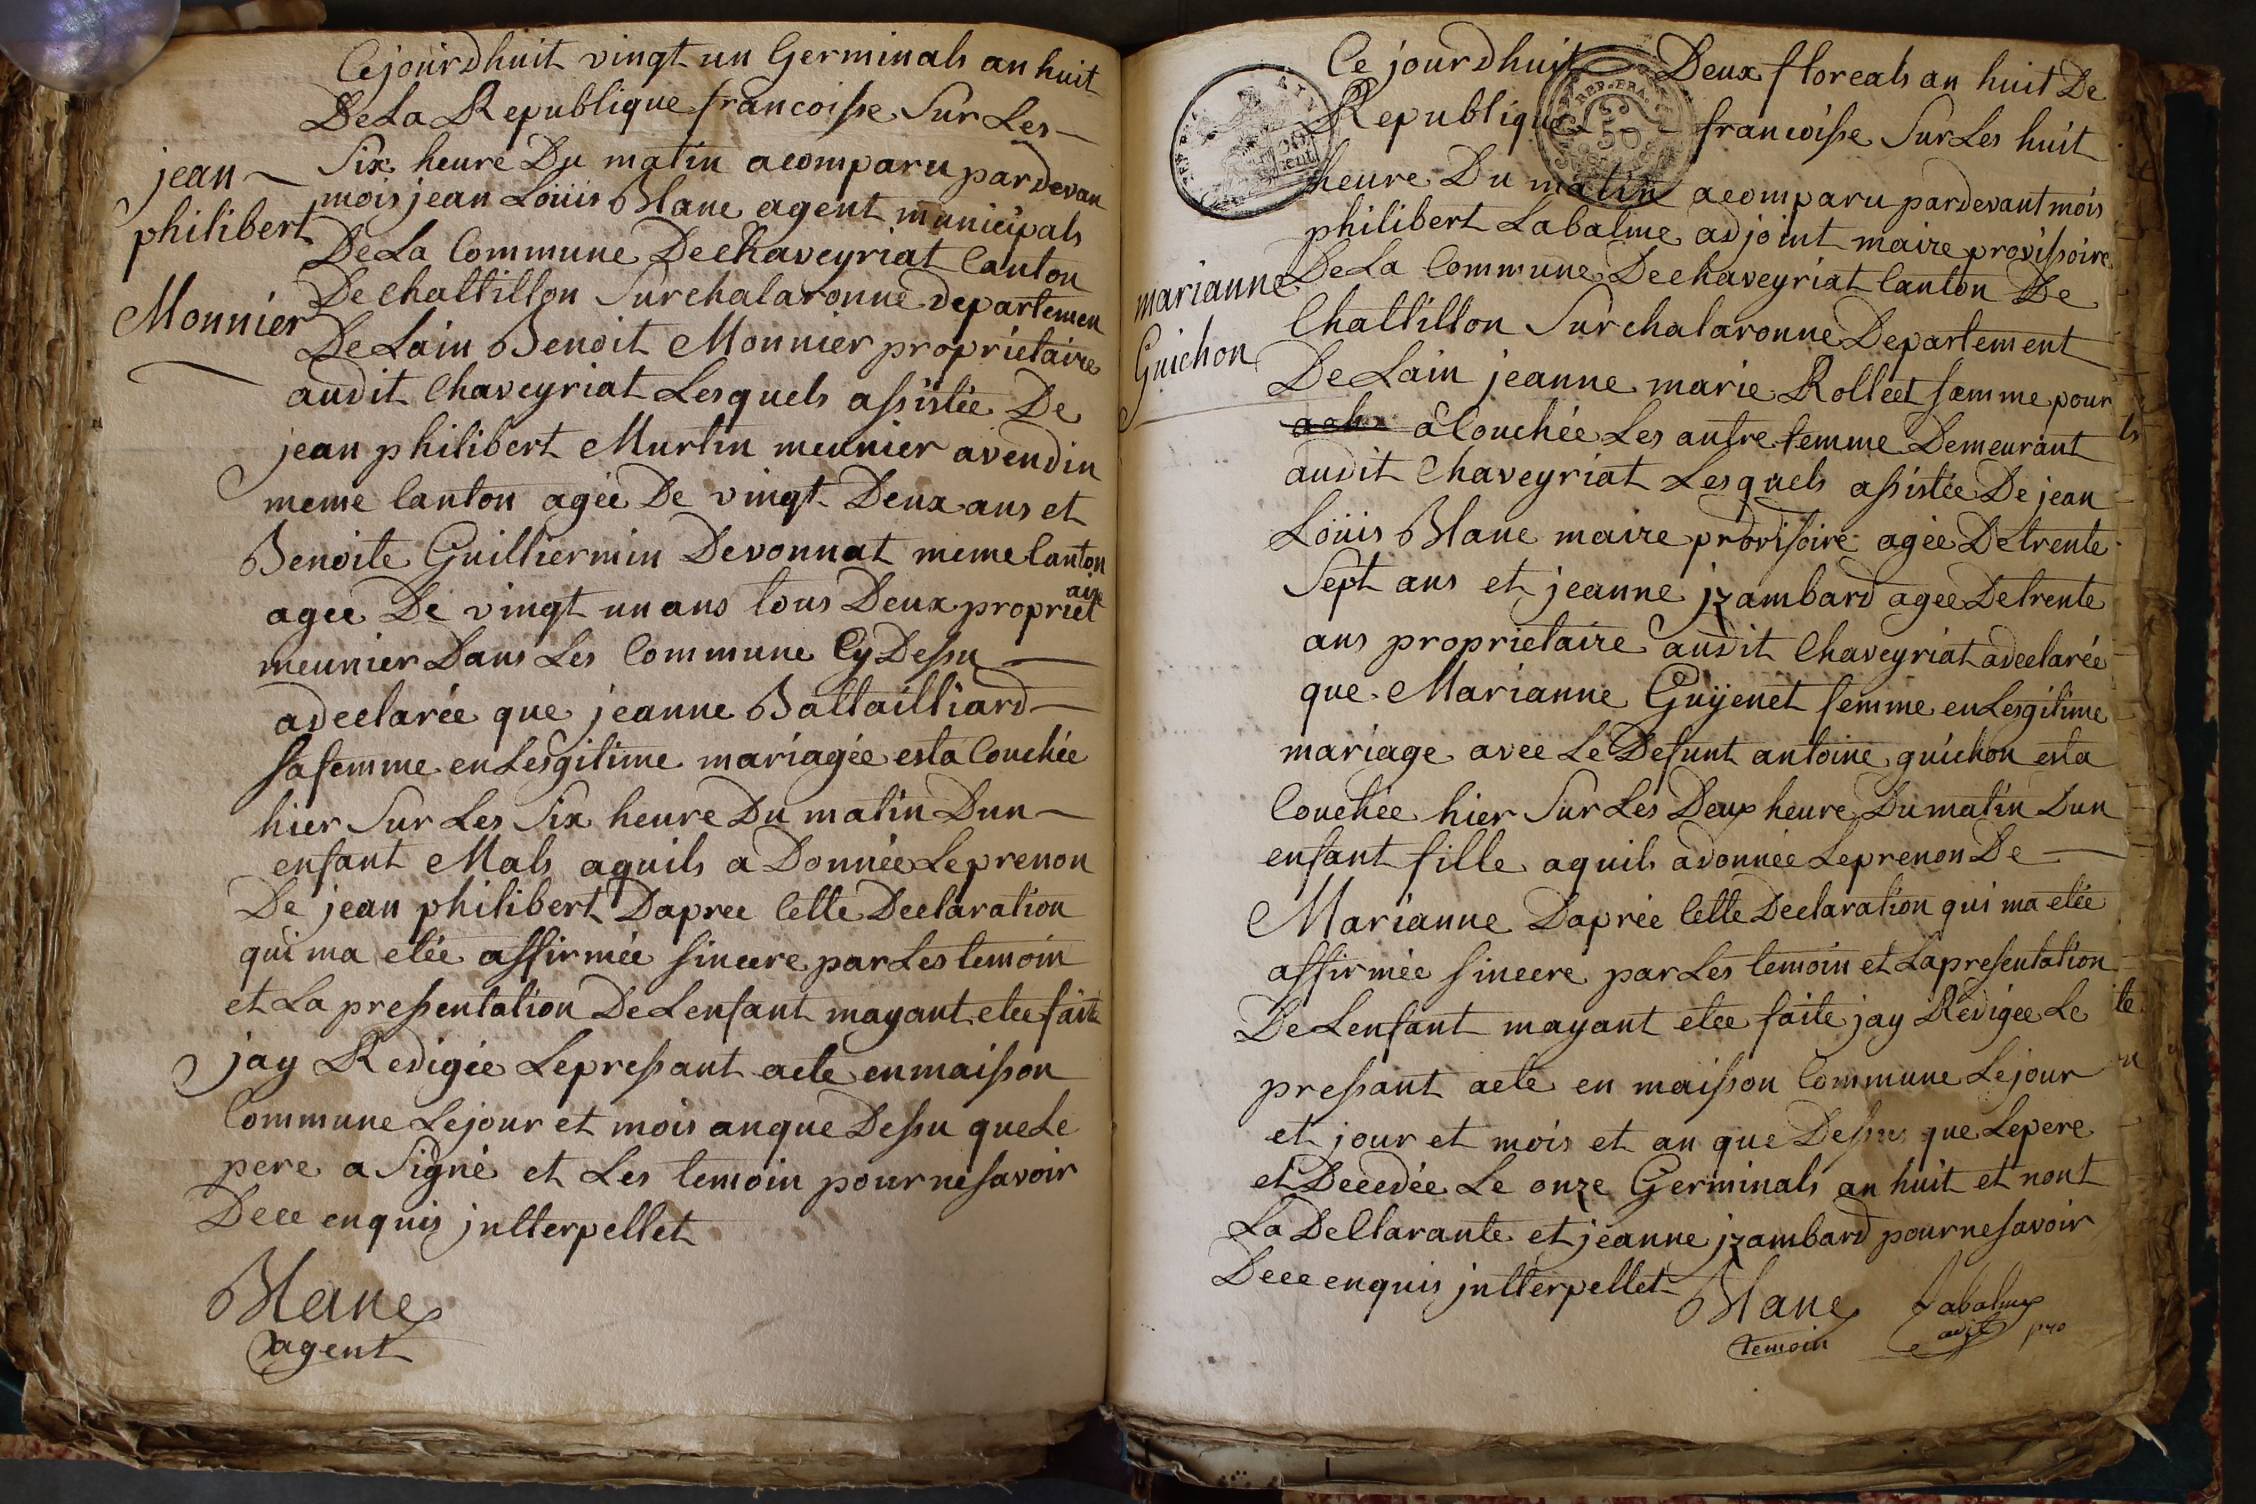 Cejourdhuit vingt un Germinals an huit
De La Republique francoisse Sur Les
Six heure Du matin acomparu pardevan
mois jean Loüis Blanc agent municipals
De La Commune De chaveyriat Canton
De chattillon Sur chalaronne departemen
De Lain Benoit Monnier proprietaire
audit Chaveyriat Lesquels assistée De
jean philibert Murtin meunier avendin
meme Canton agée De vingt Deux ans et
Benoite Guilliermin Devonnat meme Canton
agee De vingt un ans tous Deux propriet
aire
meunier Dans Les Commune Cy Dessu
adeclarée que jeanne Battailliard
sa femme en Lesgitime mariagée esta Couchée
hier Sur Les Six heure Du matin Dun
enfant Mals aquils a Donnée Le prenon
De jean philibert Dapree Cette Declaration
qui ma etée affirmée sincere par Les temoin
et La pressentation De Lenfant mayant etee faite
jay Redigée Le pressant acte en maisson
Commune Le jour et mois an que Dessu que Le
pere a Signé et Les temoin pour ne savoir
Dece enquis jntterpellet
Blanc
agent
jean
philibert
Monnier
Ce jourdhuit Deux floreals an huit De
Republique francoisse Sur Les huit
heure Du matin acomparu pardevant mois
philibert Labalme adjoint maire provissoire
De La Commune De chaveyriat Canton De
Chattillon Sur chalaronne Departement
De Lain jeanne marie Rolleet famme pour
a Couchée Les autre femme Demeurant
audit Chaveyriat Lesquels assistée De jean
Loüis Blanc maire provisoire agée De trente
Sept ans et jeanne jzambard agee De trente
ans proprietaire audit Chaveyriat adeclarée
que Marianne Guyenet femme en Lesgitime
mariage avec Le Defunt antoine guichon esta
Couchée hier Sur Les Deux heure Du matin Dun
enfant fille aquils adonnée Le prenon De
Marianne Daprée Cette Declaration qui ma etée
affirmée sincere par Les temoin et La presentation
De Lenfant mayant etee faite jay Redigée Le
pressant acte en maisson Commune Le jour
et jour et mois et an que Dessus que Le pere
et Decedée Le onze Germinals an huit et nont
La Decllarante et jeanne jzambard pour ne savoir
Dece enquis jntterpellet
Blanc
temoin
Labalme
adjt pro
marianne
Guichon
REP. FRA.
50